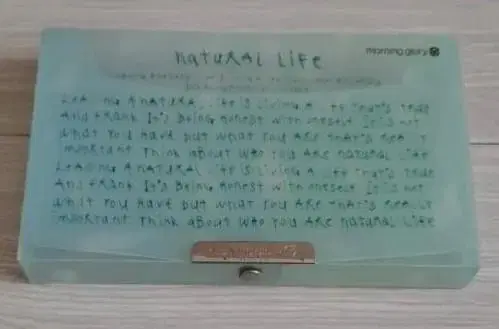 natural life
morning glory
LEADING A NATURAL life is living A life that's true
And frank It's Being honest with oneself It's not
what you have but what you are that's really
important think about who you are natural life
LEADING A NATURAL life is living A life that's true
And frank It's Being honest with oneself It's not
what you have but what you are that's really
important think about who you are natural life